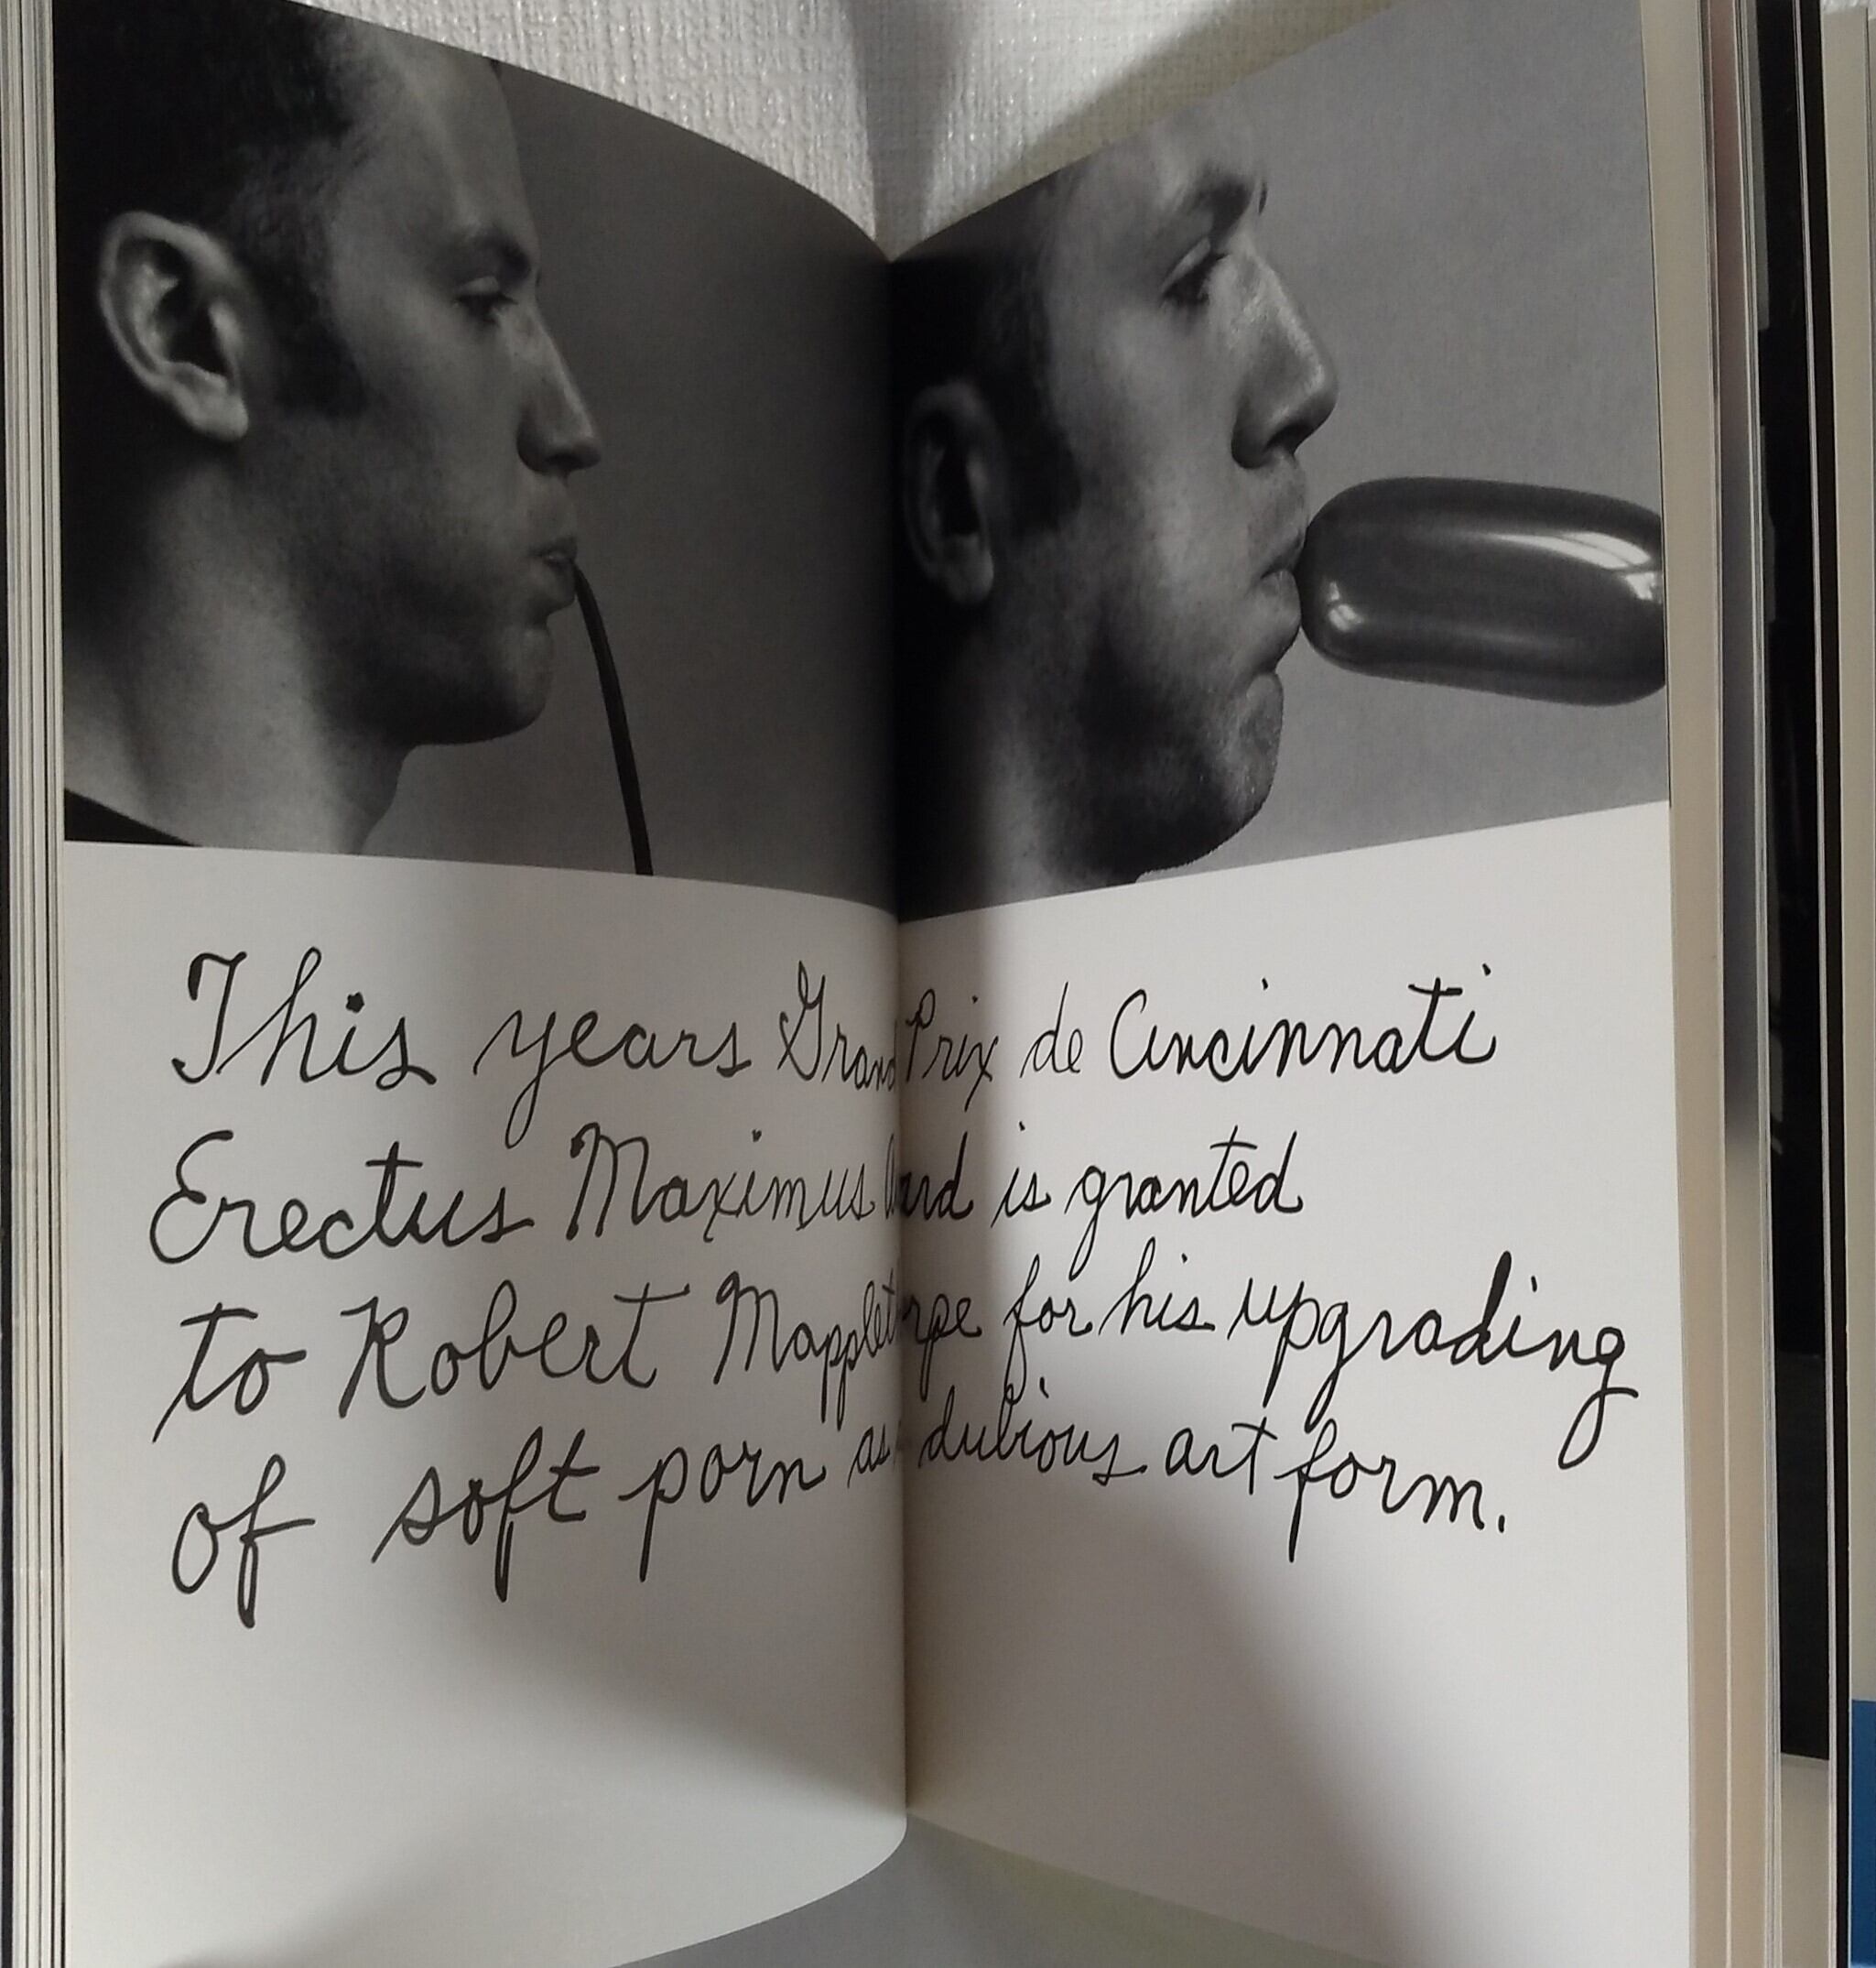 This years Grand Prix de Cincinnati
Erectus Maximus is granted
to Robert for his upgrading
of soft porn as dubious art form.